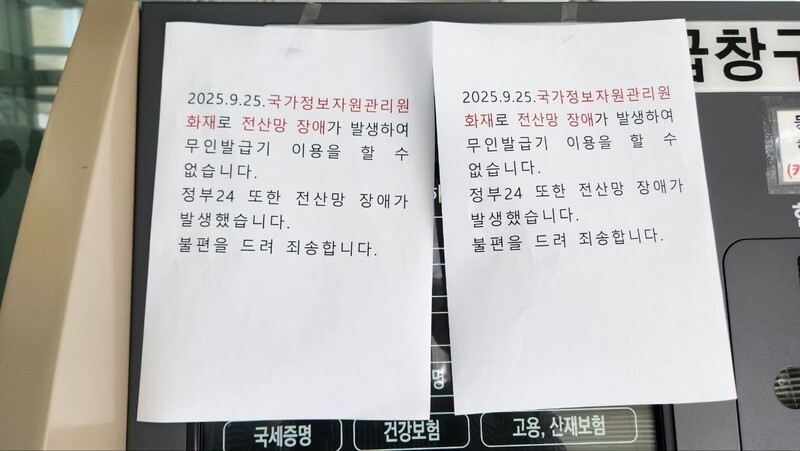 2025.9.25.국가정보자원관리원
화재로 전산망 장애가 발생하여
무인발급기 이용을 할 수
없습니다.
정부24 또한 전산망 장애가
발생했습니다.
불편을 드려 죄송합니다.
2025.9.25.국가정보자원관리원
화재로 전산망 장애가 발생하여
무인발급기 이용을 할 수
없습니다.
정부24 또한 전산망 장애가
발생했습니다.
불편을 드려 죄송합니다.
급창구
명
국세증명
건강보험
고용, 산재보험